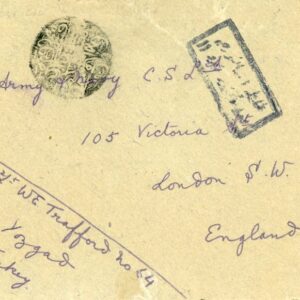 Army & Navy C.S. Ltd
105 Victoria St
London S.W.
England
W E Trafford No 64
Yozgad